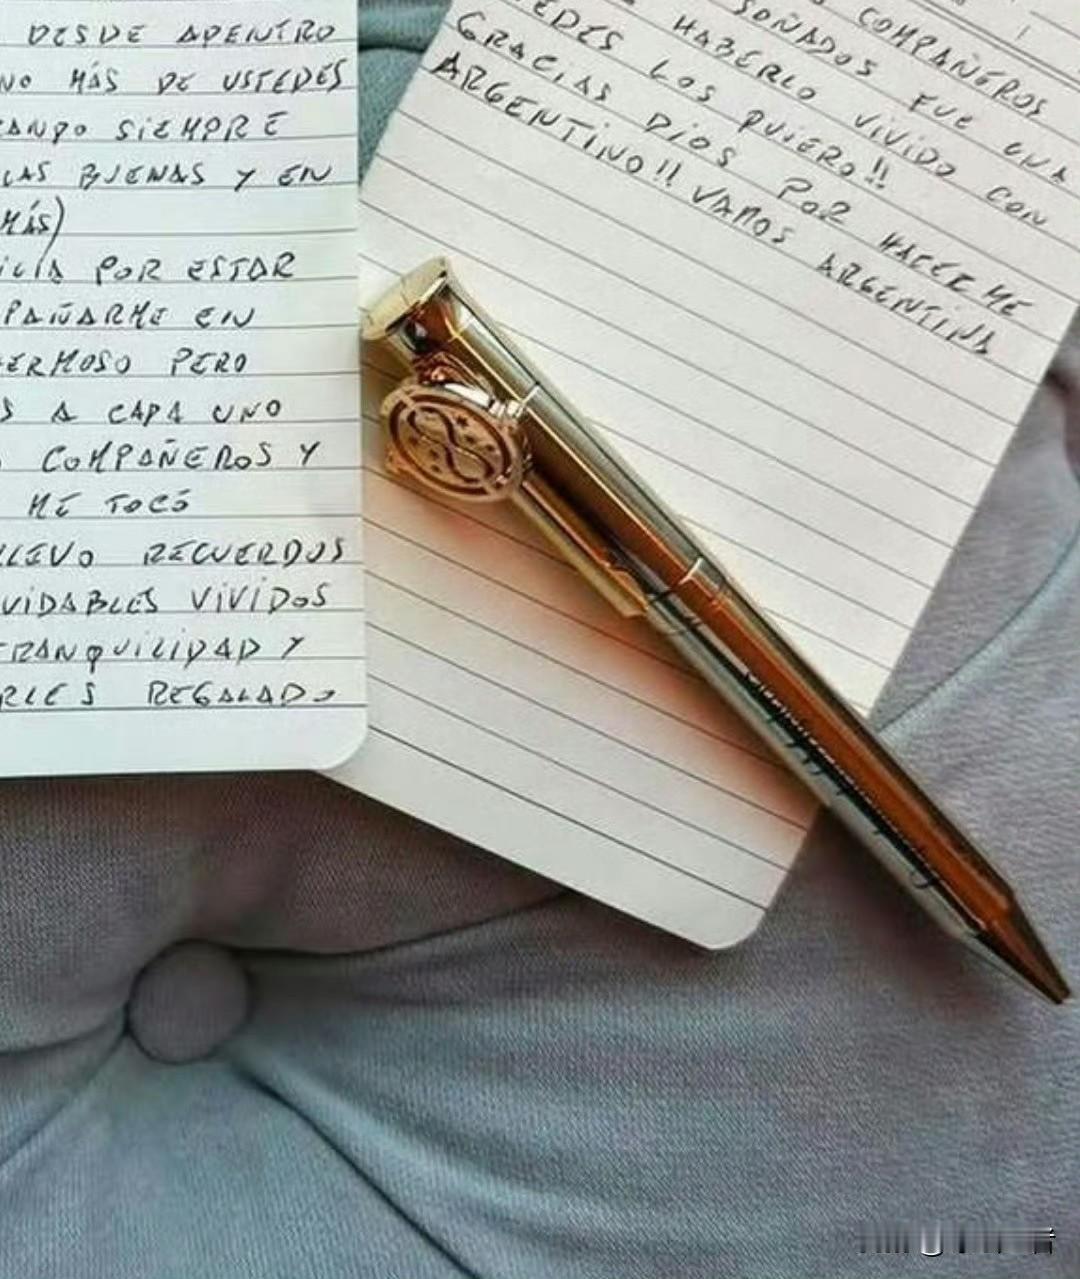 DESDE ADENTRO
NO MÁS DE USTEDES
ANDO SIEMPRE
LAS BUENAS Y EN
MÁS)
ICIA POR ESTAR
PAÑARME EN
ERMOSO PERO
S A CADA UNO
COMPAÑEROS Y
ME TOCÓ
LLEVO RECUERDOS
VIDABLES VIVIDOS
TRANQUILIDAD Y
RLES REGALADO
COMPAÑEROS
SOÑADOS FUE UNA
HABERLO VIVIDO CON
EDES LOS QUIERO!!
GRACIAS DIOS POR HACERME
ARGENTINO!! VAMOS ARGENTINA